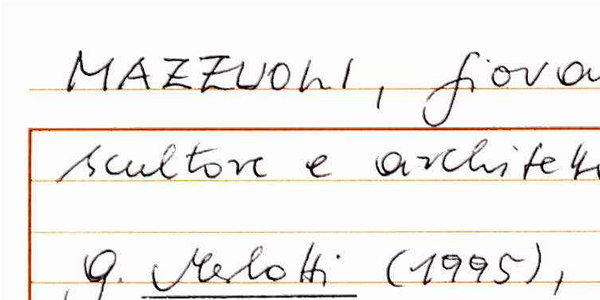 MAZZUOLI, Giova
scultore e architett
G. Merlotti (1995),